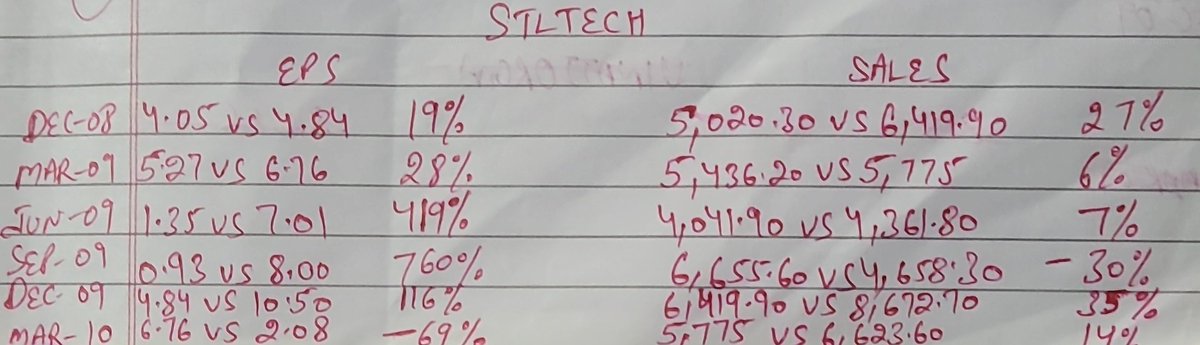 STLTECH
EPS SALES
DEC-08 4.05 VS 4.84 19% 5,020.30 VS 6,419.90 27%
MAR-09 5.27 VS 6.76 28% 5,436.20 VS 5,775 6%
JUN-09 1.35 VS 7.01 419% 4,041.90 VS 4,361.80 7%
SEP-09 0.93 VS 8.00 760% 6,655.60 VS 4,658.30 -30%
DEC-09 4.84 VS 10.50 116% 6,419.90 VS 8,672.70 35%
MAR-10 6.76 VS 2.08 -69% 5,775 VS 6,623.60 14%